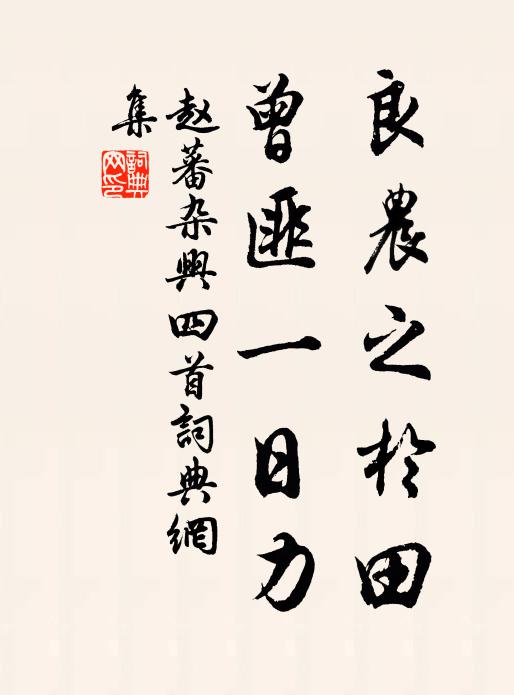 良農之於田
曾匪一日力
赵蕃杂興四首詞典網
集
詞典網印